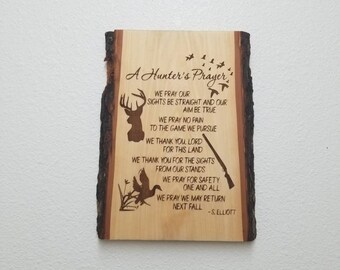 A Hunter's Prayer
WE PRAY OUR
SIGHTS BE STRAIGHT AND OUR
AIM BE TRUE
WE PRAY NO PAIN
TO THE GAME WE PURSUE
WE THANK YOU, LORD
FOR THIS LAND
WE THANK YOU FOR THE SIGHTS
FROM OUR STANDS
WE PRAY FOR SAFETY
ONE AND ALL
WE PRAY WE MAY RETURN
NEXT FALL
- S. ELLIOTT